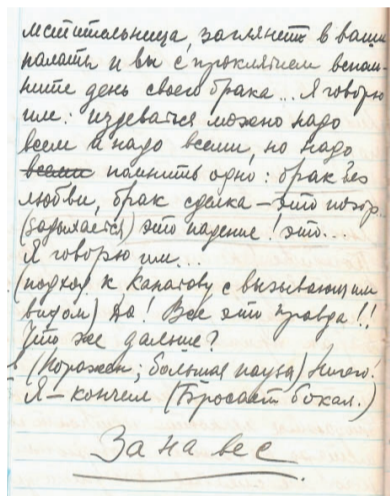 мстительница, заглянет в ваши
палаты и вы с проклятием вспом-
ните день своего брака... Я говорю
им: издеваться можно надо
всем и надо всеми, но надо
всеми помнить одно: брак без
любви, брак сделка — это позор
(задыхается) это падение! это...
Я говорю им...
(подход. к Капатову с вызывающим
видом) Да! Все это правда!!
Что же дальше?
(Поражен; большая пауза) Ничего.
Я — кончил (Бросает бокал.)
Занавес